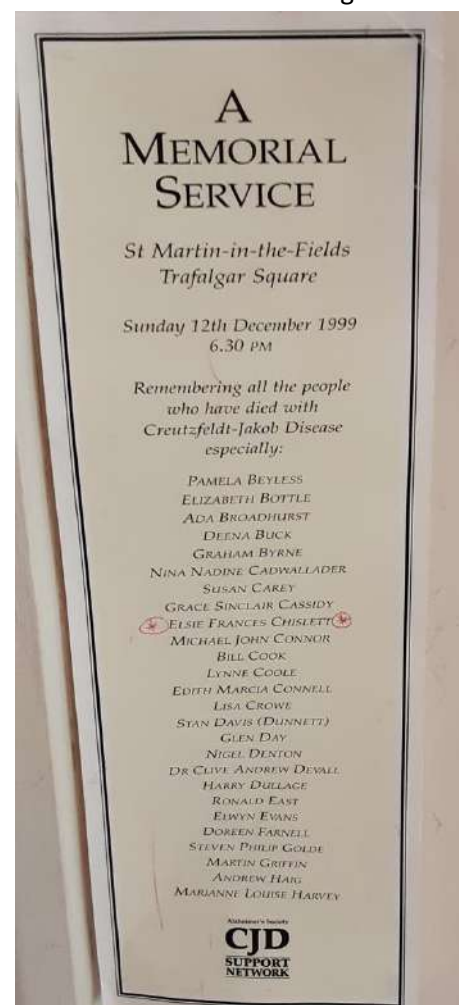 A
MEMORIAL
SERVICE
St Martin-in-the-Fields
Trafalgar Square
Sunday 12th December 1999
6.30 PM
Remembering all the people
who have died with
Creutzfeldt-Jakob Disease
especially:
PAMELA BEYLESS
ELIZABETH BOTTLE
ADA BROADHURST
DEENA BUCK
GRAHAM BYRNE
NINA NADINE CADWALLADER
SUSAN CAREY
GRACE SINCLAIR CASSIDY
ELSIE FRANCES CHISLETT
MICHAEL JOHN CONNOR
BILL COOK
LYNNE COOLE
EDITH MARCIA CONNELL
LISA CROWE
STAN DAVIS (DUNNETT)
GLEN DAY
NIGEL DENTON
DR CLIVE ANDREW DEVALL
HARRY DULLAGE
RONALD EAST
ELWYN EVANS
DOREEN FARNELL
STEVEN PHILIP GOLDE
MARTIN GRIFFIN
ANDREW HAIG
MARIANNE LOUISE HARVEY
Alzheimer's Society
CJD
SUPPORT
NETWORK